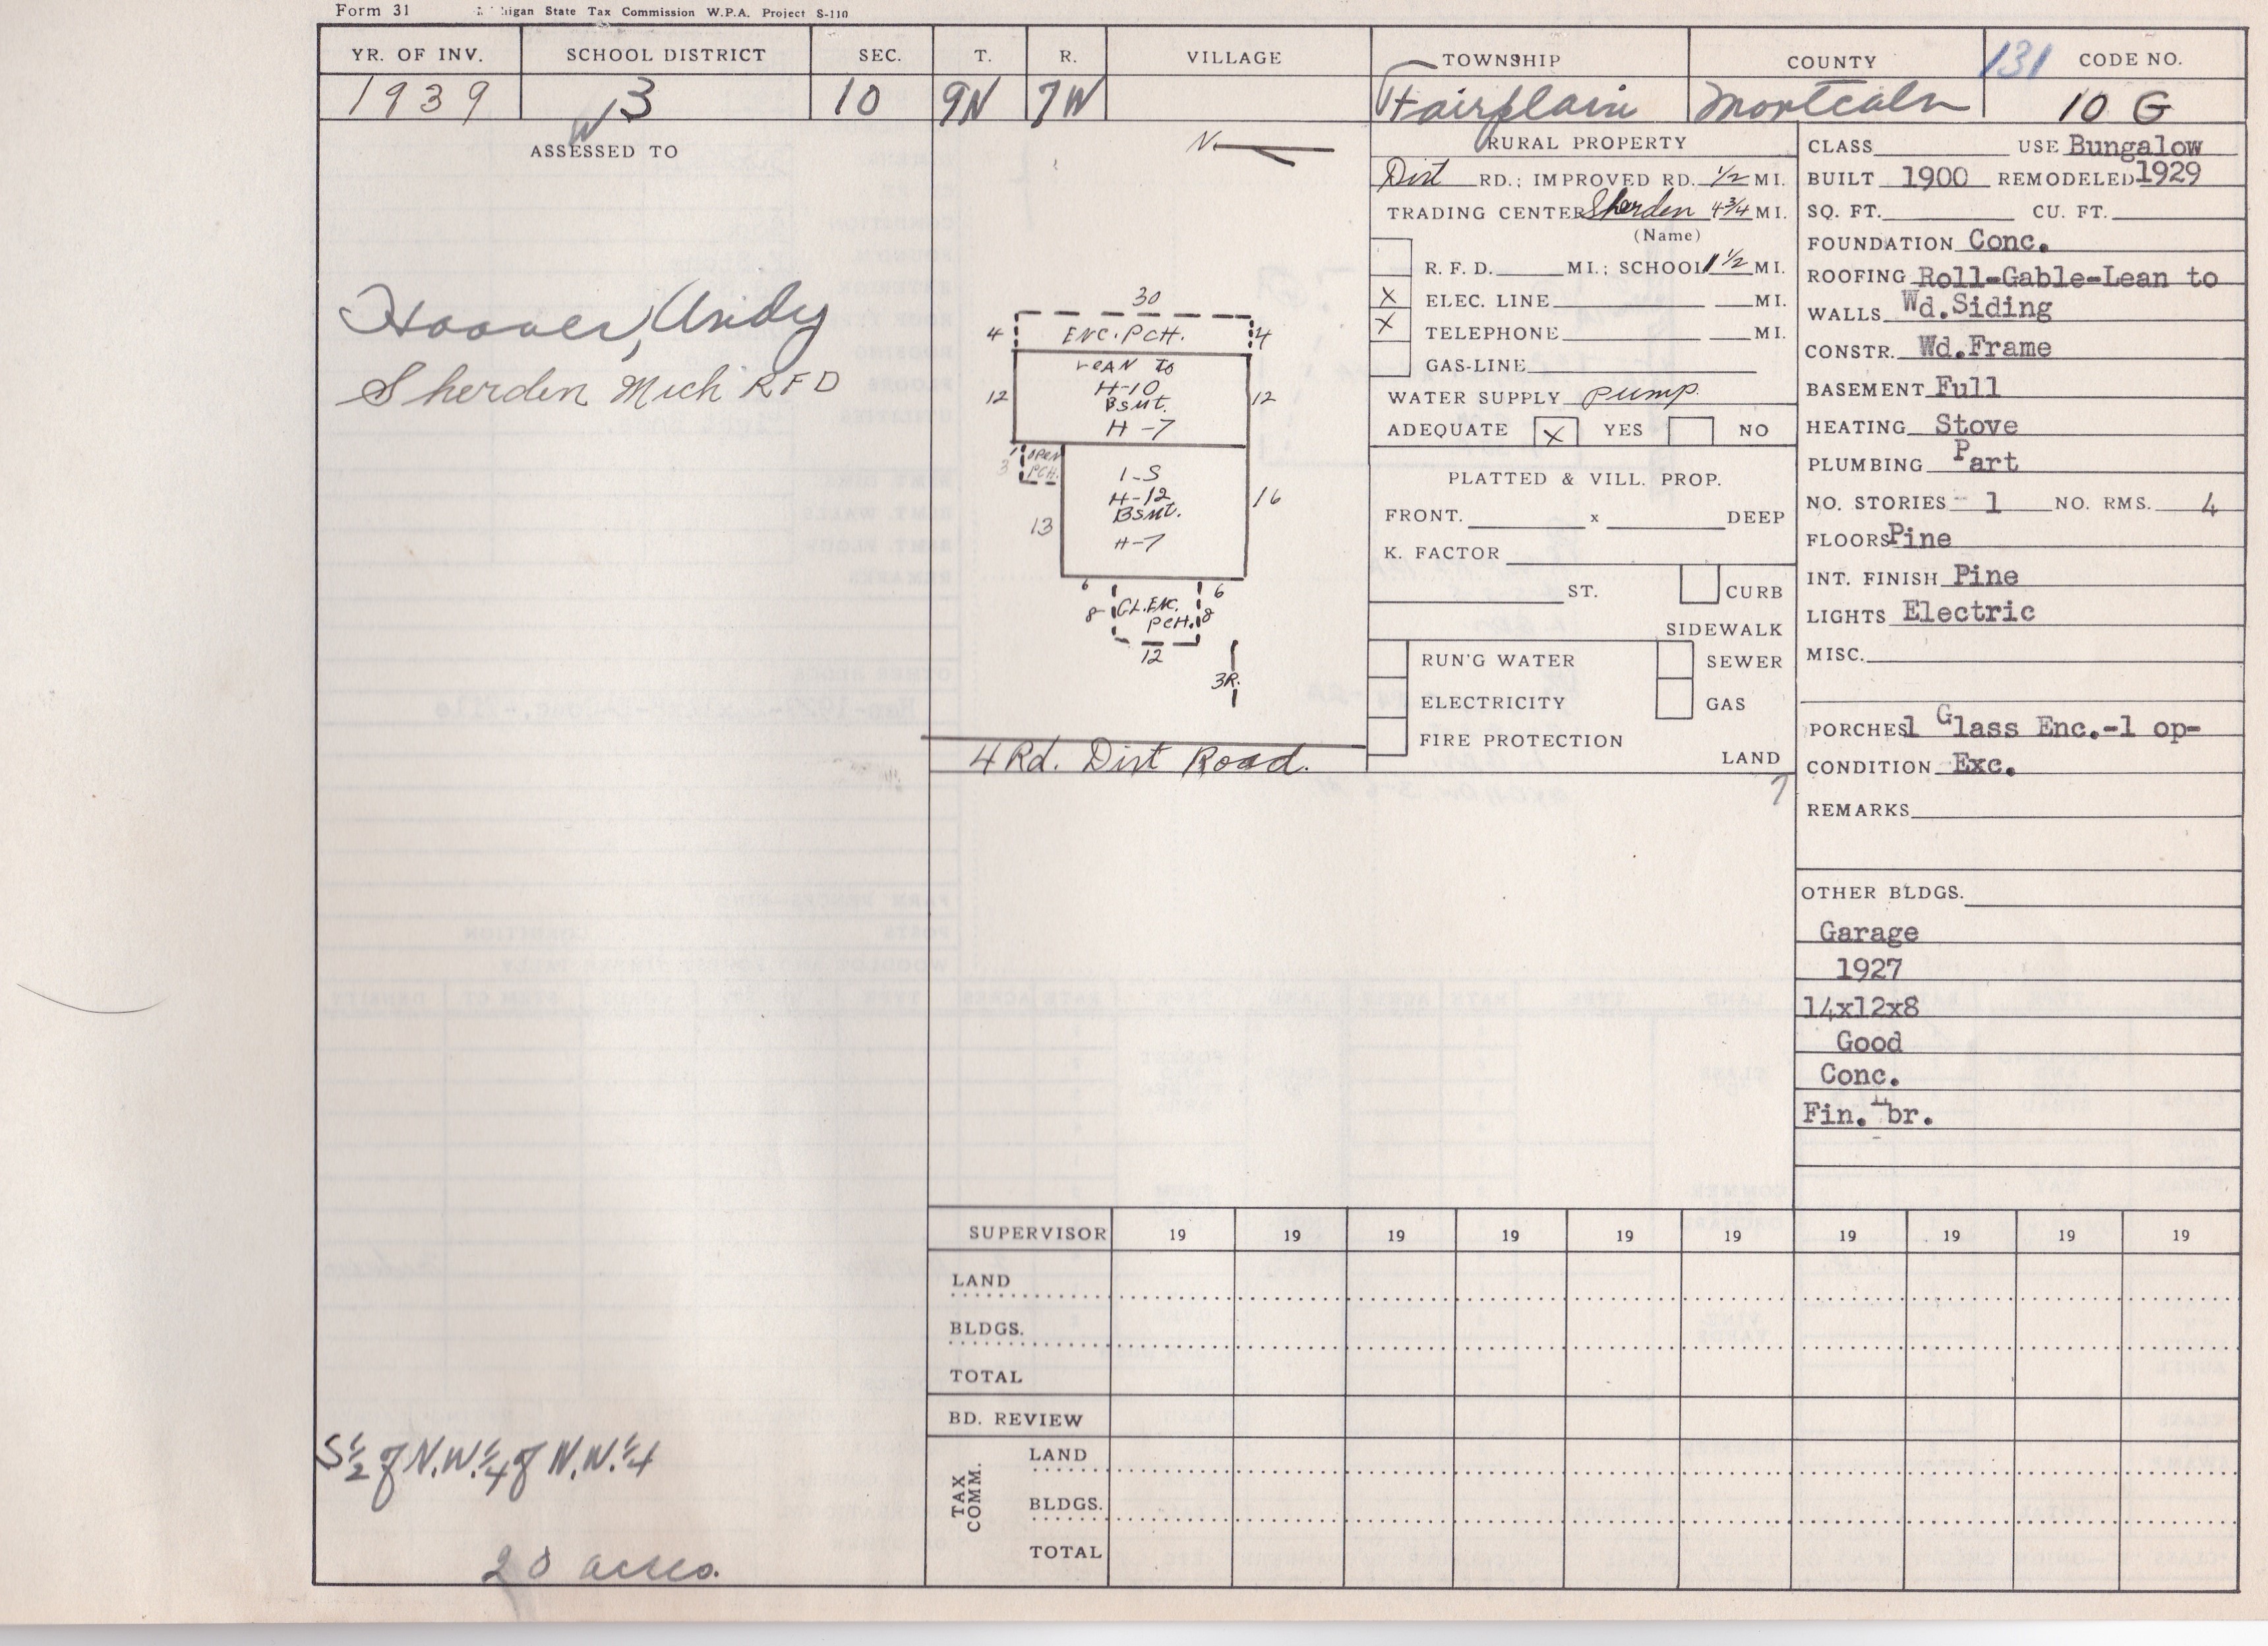 Form 31 higan State Tax Commission W.P.A. Project S-110
YR. OF INV. SCHOOL DISTRICT SEC. T. R. VILLAGE TOWNSHIP COUNTY 131 CODE NO.
1939 3 10 9N 7W Fairplain Montcalm 10 G
ASSESSED TO
Hoover, Andy
Sherden Mich RFD
S 1/2 of N.W. 1/4 of N.W. 1/4
20 acres.
N
30
4 ENC. PCH. 4
LEAN TO
H-10
12 BSMT. 12
H-7
3 OPEN PCH.
1-S
H-12
BSMT.
13 H-7 16
6 6
8 GL. ENC. PCH. 8
12
3R.
4 Rd. Dist Road.
RURAL PROPERTY
Dist RD.; IMPROVED RD. 1/2 MI.
TRADING CENTER Sherden 4 3/4 MI.
(Name)
R. F. D. MI.; SCHOOL 1 1/2 MI.
X ELEC. LINE MI.
X TELEPHONE MI.
GAS-LINE
WATER SUPPLY pump.
ADEQUATE X YES NO
PLATTED & VILL. PROP.
FRONT. x DEEP
K. FACTOR
ST. CURB
SIDEWALK
RUN'G WATER SEWER
ELECTRICITY GAS
FIRE PROTECTION
LAND
7
CLASS USE Bungalow
BUILT 1900 REMODELED 1929
SQ. FT. CU. FT.
FOUNDATION Conc.
ROOFING Roll-Gable-Lean to
WALLS Wd.Siding
CONSTR. Wd.Frame
BASEMENT Full
HEATING Stove
PLUMBING Part
NO. STORIES 1 NO. RMS. 4
FLOORS Pine
INT. FINISH Pine
LIGHTS Electric
MISC.
PORCHES 1 Glass Enc.-1 op-
CONDITION Exc.
REMARKS
OTHER BLDGS.
Garage
1927
14x12x8
Good
Conc.
Fin. br.
SUPERVISOR 19 19 19 19 19 19 19 19 19 19
LAND
BLDGS.
TOTAL
BD. REVIEW
TAX COMM.
LAND
BLDGS.
TOTAL